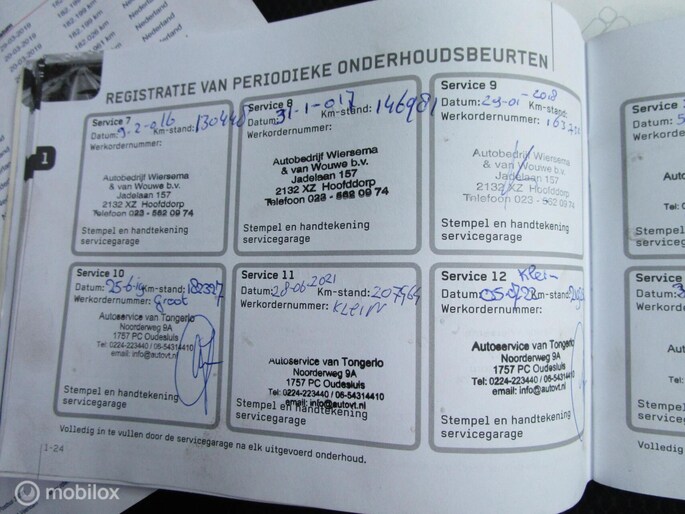 29-03-2019 182.199 km Nederland
20-03-2019 182.199 km Nederland
20-03-2019 182.026 km Nederland
REGISTRATIE VAN PERIODIEKE ONDERHOUDSBEURTEN
1
Service 7
Datum: 9-2-016 Km-stand: 130448
Werkordernummer:
Autobedrijf Wiersema
& van Wouwe b.v.
Jadelaan 157
2132 XZ Hoofddorp
Telefoon 023 - 562 09 74
Stempel en handtekening
servicegarage
Service 8
Datum: 31-1-017 Km-stand: 146981
Werkordernummer:
Autobedrijf Wiersema
& van Wouwe b.v.
Jadelaan 157
2132 XZ Hoofddorp
Telefoon 023 - 562 09 74
Stempel en handtekening
servicegarage
Service 9
Datum: 29-01-2018 Km-stand:
Werkordernummer:
Autobedrijf Wiersema
& van Wouwe b.v.
Jadelaan 157
2132 XZ Hoofddorp
Telefoon 023 - 562 09 74
Stempel en handtekening
servicegarage
Service 10
Datum: 25-6-19 Km-stand: 182327
Werkordernummer: Groot
Autoservice van Tongerlo
Noorderweg 9A
1757 PC Oudesluis
Tel: 0224-223440 / 06-54314410
email: info@autovt.nl
Stempel en handtekening
servicegarage
Service 11
Datum: 28-06-2021 Km-stand: 207964
Werkordernummer: KLEIN
Autoservice van Tongerlo
Noorderweg 9A
1757 PC Oudesluis
Tel: 0224-223440 / 06-54314410
email: info@autovt.nl
Stempel en handtekening
servicegarage
Service 12 Klein
Datum: Km-stand:
Werkordernummer:
Autoservice van Tongerlo
Noorderweg 9A
1757 PC Oudesluis
Tel: 0224-223440 / 06-54314410
email: info@autovt.nl
Stempel en handtekening
servicegarage
Volledig in te vullen door de servicegarage na elk uitgevoerd onderhoud.
1-24
Service
Datum:
Werkord
Tel: 0
Stempel
servicega
Service
Datum:
Werkord
Stempel
servicega
Volledig
mobilox